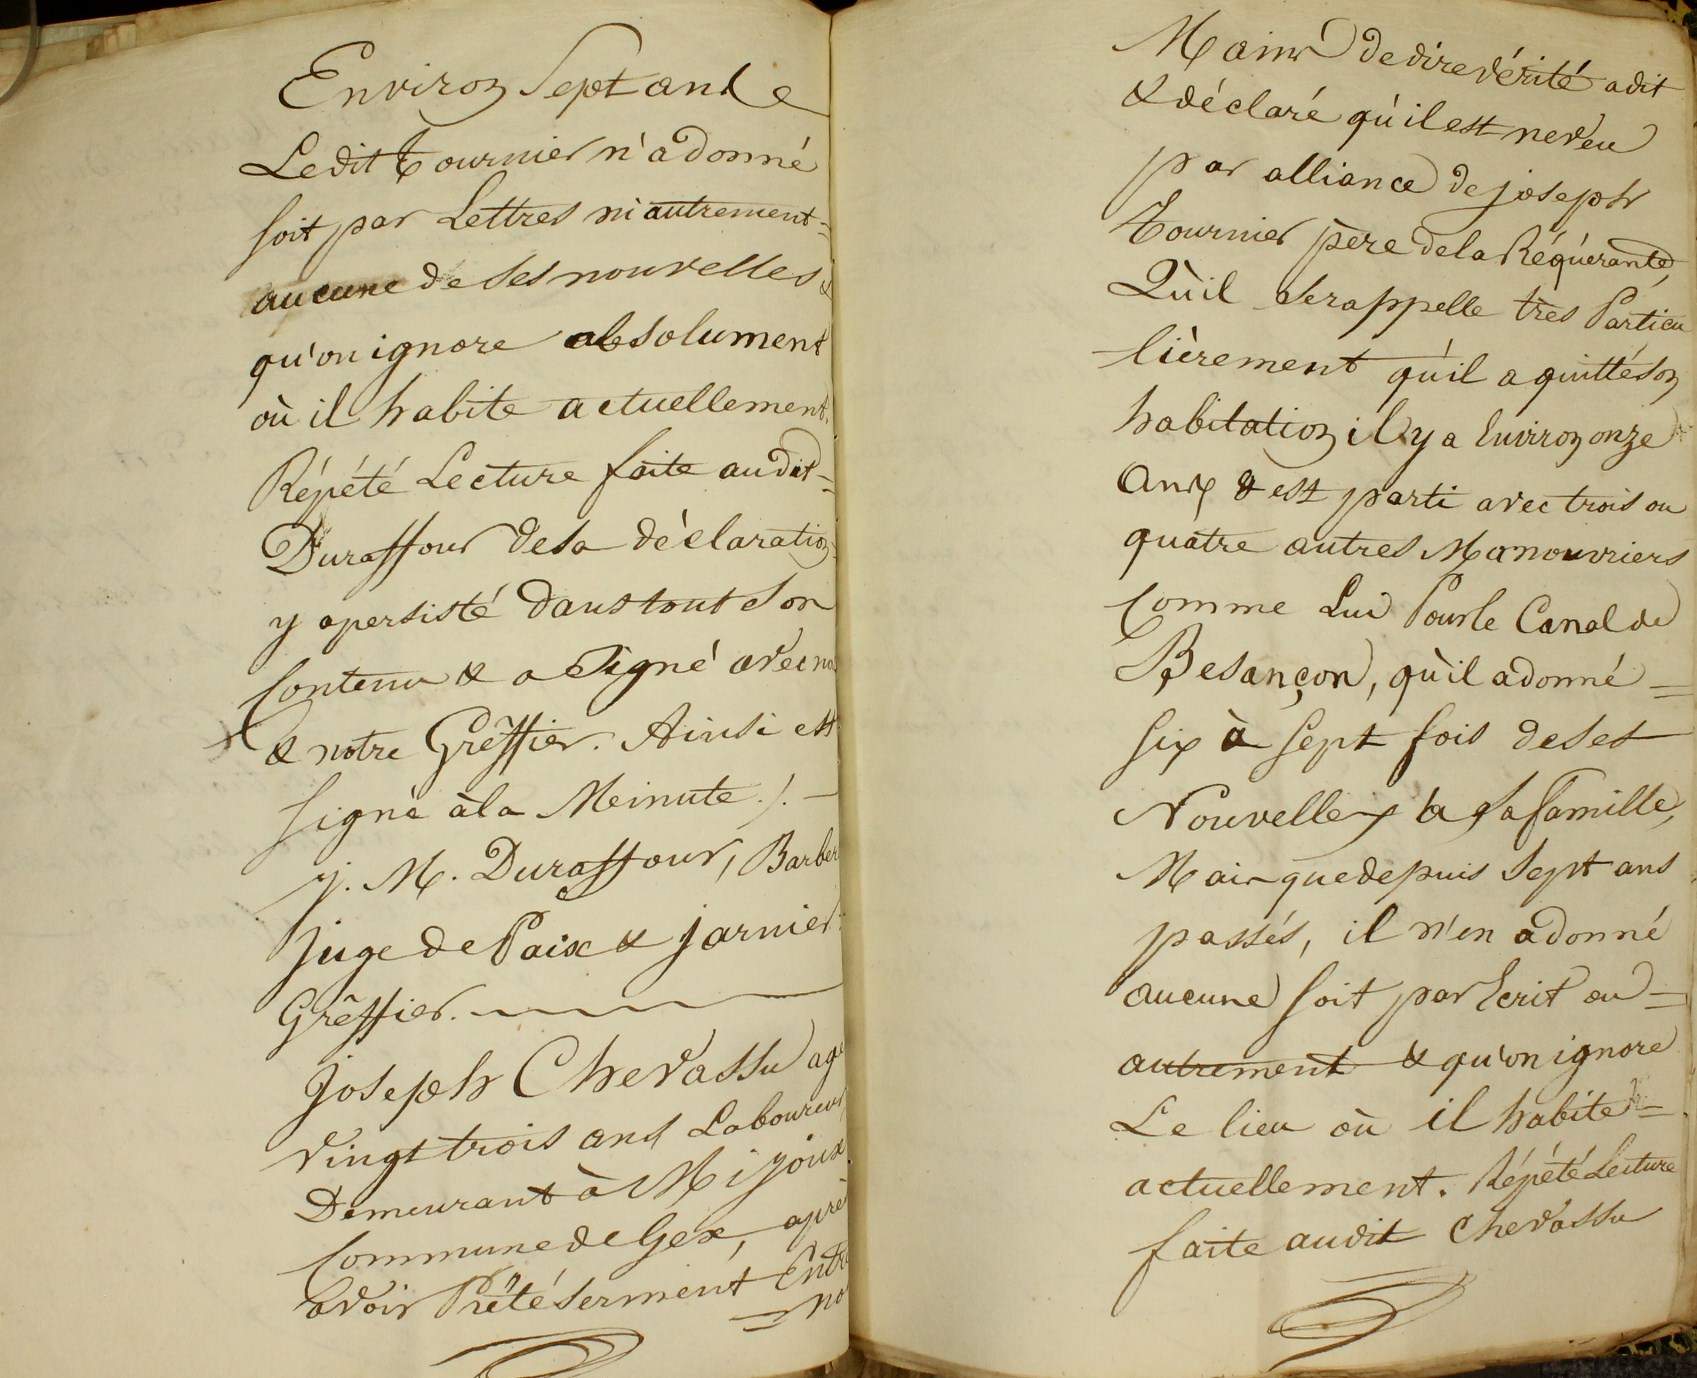 Environ Sept ans
Ledit Tournier n'a donné
soit par Lettres ni autrement =
aucune de ses nouvelles &
qu'on ignore absolument
où il habite actuellement.
Répété Lecture faite audit =
Duraffour de sa déclaration
y a persisté dans tout Son
Contenu & a Signé avec
& notre Grêffier. Ainsi est
signé à la Meinute ./. —
j. M. Duraffour, Barber
juge de Paix & jarnier
Grêffier.
joseph Chevassu age
vingt trois ans Laboureur
Demeurant à Mijoux
Commune de Gex, après
avoir Prêté serment Entre
= no
Mains de dire vérité a dit
& déclaré qu'il est neveu
par alliance de joseph
Tournier père de la Réquérante
Qu'il Se rappelle très Particu
lièrement qu'il a quitté Son
habitation il y a Environ onze
Ans & est parti avec trois ou
quatre autres Manouvriers
Comme Lui Pour le Canal de
Besançon, qu'il a donné =
six à sept fois de ses
Nouvelles à sa famille,
Mais que depuis Sept ans
passés, il n'en a donné
aucune soit par Ecrit ou =
autrement & qu'on ignore
Le lieu où il habite =
actuellement. Répété Lecture
faite audit Chevassu